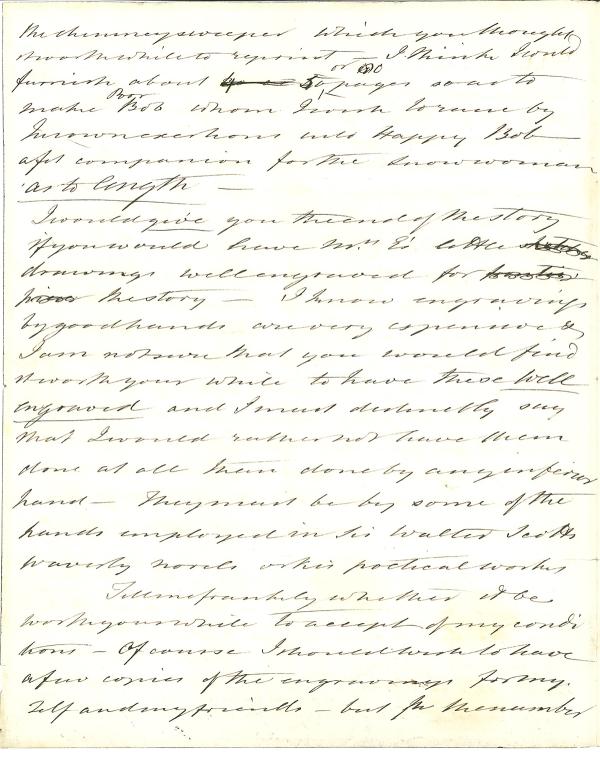 the chimney sweeper which you thought
it worth while to reprint — I think I could
furnish about 50 or 60 pages so as to
make Poor Bob whom I wish to raise by
his own exertions into Happy Bob
a fit companion for the Snow woman
as to length —
I would give you the end of the story
if you would have Mrs E's little
drawings well engraved for
the story — I know engravings
by good hands are very expensive &
I am not sure that you would find
it worth your while to have these well
engraved and I must distinctly say
that I would rather not have them
done at all than done by any inferior
hand — They must be by some of the
hands employed in Sir Walter Scotts
waverly novels or his poetical works
Tell me frankly whether it be
worth your while to accept of my condi
tions — Of course I should wish to have
a few copies of the engravings for my.
self and my friends — but for the number